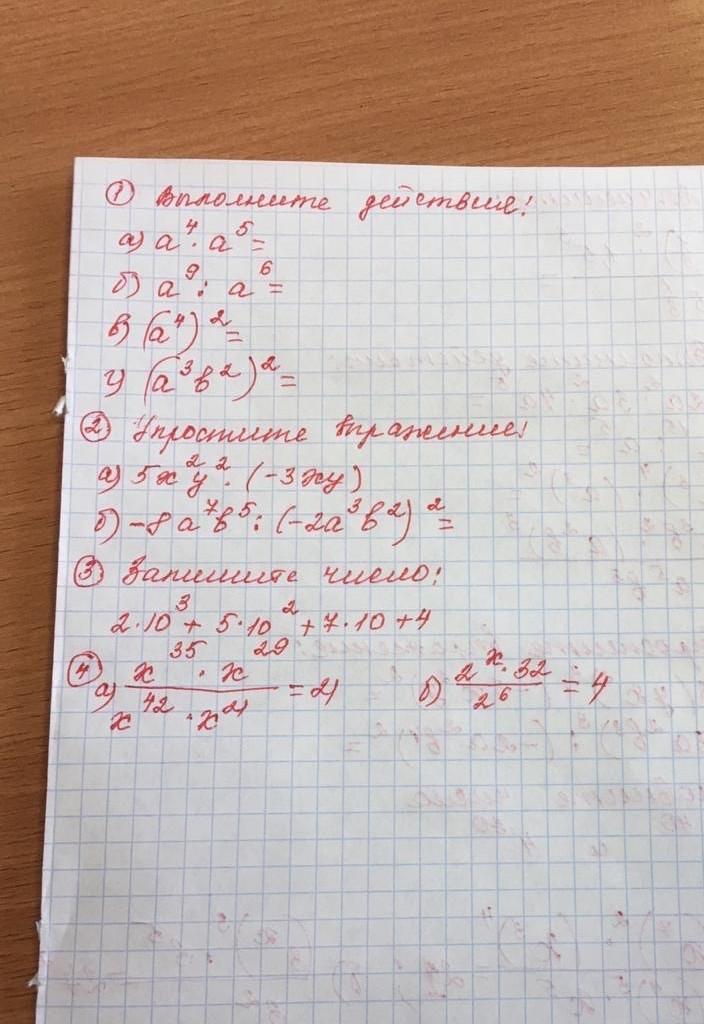 ① Выполните действие:
а) a⁴ · a⁵ =
б) a⁹ : a⁶ =
в) (a⁴)² =
г) (a³b²)² =
② Упростите выражение:
а) 5x²y² · (-3xy)
б) -8a⁷b⁵ : (-2a³b²)² =
③ Запишите число:
2·10³ + 5·10² + 7·10 + 4
④ а) (x³⁵ · x²⁹)/(x⁴² · x²¹) = 21 б) (2ˣ · 32)/2⁶ = 4